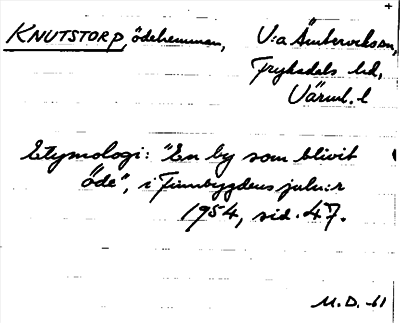 KNUTSTORP, ödehemman, V:a Ämterviks sn,
Fryksdals hd,
Värml. l
Etymologi: "En by som blivit
öde", i Finnbygdens julnr
1954, sid. 47.
M.D. -61